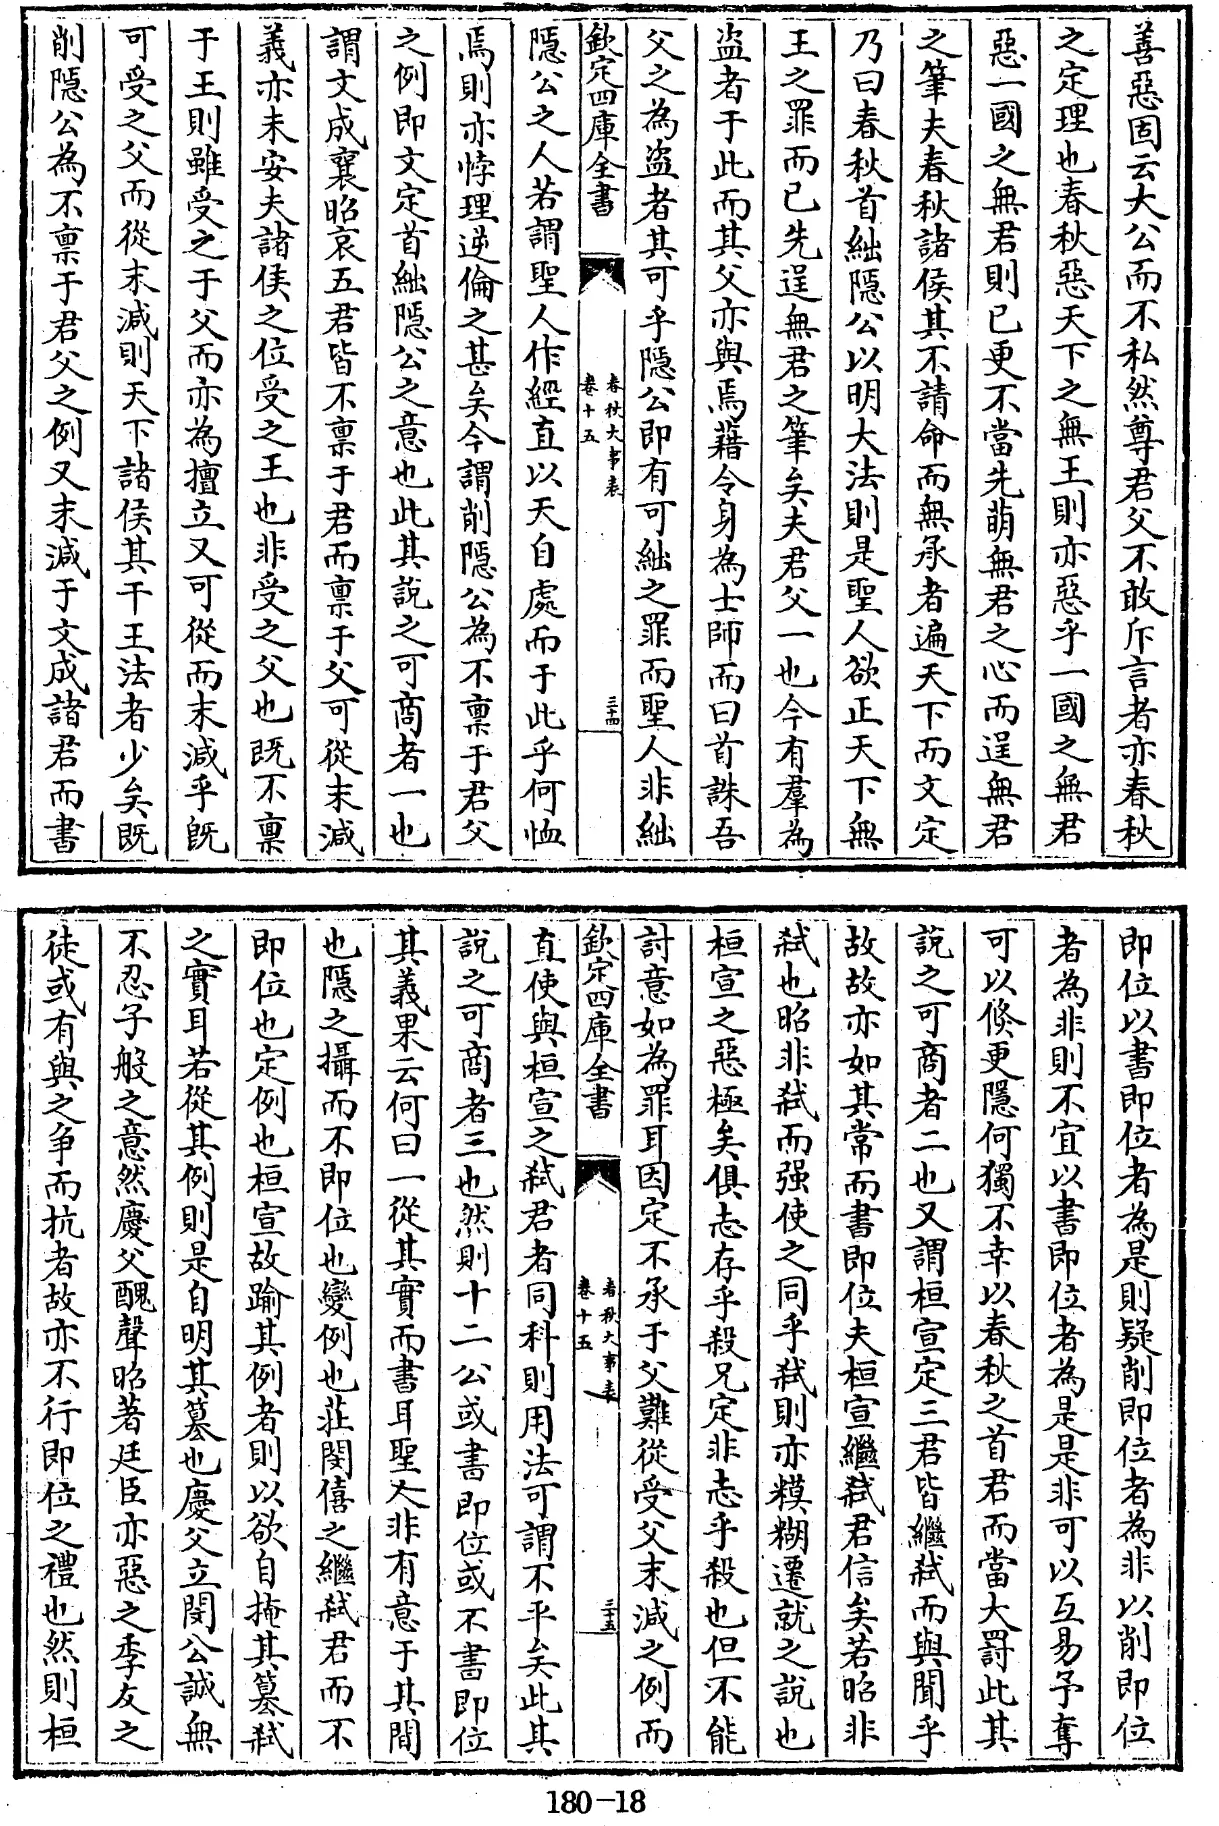 善惡固云大公而不私然尊君父不敢斥言者亦春秋
之定理也春秋惡天下之無王則亦惡乎一國之無君
惡一國之無君則已更不當先萌無君之心而逞無君
之筆夫春秋諸侯其不請命而無承者遍天下而文定
乃曰春秋首絀隱公以明大法則是聖人欲正天下無
王之罪而已先逞無君之筆矣夫君父一也今有羣為
盗者于此而其父亦與焉藉令身為士師而曰首誅吾
父之為盗者其可乎隱公即有可絀之罪而聖人非絀
欽定四庫全書
春秋大事表
卷十五
三十四
隱公之人若謂聖人作經直以天自處而于此乎何恤
焉則亦悖理逆倫之甚矣今謂削隱公為不禀于君父
之例即文定首絀隱公之意也此其說之可商者一也
謂文成襄昭哀五君皆不禀于君而禀于父可從末減
義亦未安夫諸侯之位受之王也非受之父也既不禀
于王則雖受之于父而亦為擅立又可從而末減乎旣
可受之父而從末減則天下諸侯其干王法者少矣既
削隱公為不禀于君父之例又末減于文成諸君而書
即位以書即位者為是則疑削即位者為非以削即位
者為非則不宜以書即位者為是是非可以互易予奪
可以倐更隱何獨不幸以春秋之首君而當大罰此其
說之可商者二也又謂桓宣定三君皆繼弑而與聞乎
故故亦如其常而書即位夫桓宣繼弑君信矣若昭非
弑也昭非弑而强使之同乎弑則亦糢糊遷就之說也
桓宣之惡極矣俱志存乎殺兄定非志乎殺也但不能
討意如為罪耳因定不承于父難從受父末減之例而
欽定四庫全書
春秋大事表
卷十五
三十五
直使與桓宣之弑君者同科則用法可謂不平矣此其
說之可商者三也然則十二公或書即位或不書即位
其義果云何曰一從其實而書耳聖人非有意于其間
也隱之攝而不即位也變例也莊閔僖之繼弑君而不
即位也定例也桓宣故踰其例者則以欲自掩其篡弑
之實耳若從其例則是自明其篡也慶父立閔公誠無
不忍子般之意然慶父醜聲昭著廷臣亦惡之季友之
徒或有與之爭而抗者故亦不行即位之禮也然則桓
180-18